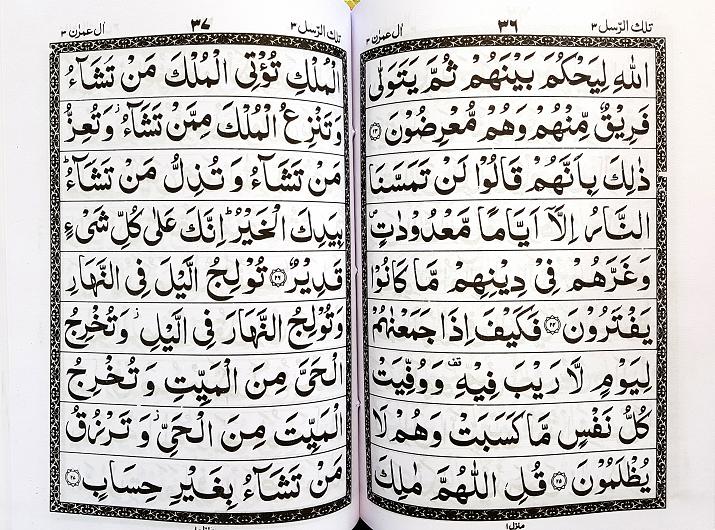 تلك الرّسل ٣ ٣٦ اٰل عمرٰن ٣
اللّٰهِ لِيَحْكُمَ بَيْنَهُمْ ثُمَّ يَتَوَلّٰى
فَرِيْقٌ مِّنْهُمْ وَهُمْ مُّعْرِضُوْنَ ﴿٢٣﴾
ذٰلِكَ بِاَنَّهُمْ قَالُوْا لَنْ تَمَسَّنَا
النَّارُ اِلَّاۤ اَيَّامًا مَّعْدُوْدٰتٍ
وَغَرَّهُمْ فِيْ دِيْنِهِمْ مَّا كَانُوْا
يَفْتَرُوْنَ ﴿٢٤﴾ فَكَيْفَ اِذَا جَمَعْنٰهُمْ
لِيَوْمٍ لَّا رَيْبَ فِيْهِ قف وَوُفِّيَتْ
كُلُّ نَفْسٍ مَّا كَسَبَتْ وَهُمْ لَا
يُظْلَمُوْنَ ﴿٢٥﴾ قُلِ اللّٰهُمَّ مٰلِكَ
منزل ١
تلك الرّسل ٣ ٣٧ اٰل عمرٰن ٣
الْمُلْكِ تُؤْتِى الْمُلْكَ مَنْ تَشَآءُ
وَتَنْزِعُ الْمُلْكَ مِمَّنْ تَشَآءُ ز وَتُعِزُّ
مَنْ تَشَآءُ وَتُذِلُّ مَنْ تَشَآءُ ؕ
بِيَدِكَ الْخَيْرُ ؕ اِنَّكَ عَلٰى كُلِّ شَىْءٍ
قَدِيْرٌ ﴿٢٦﴾ تُوْلِجُ الَّيْلَ فِى النَّهَارِ
وَتُوْلِجُ النَّهَارَ فِى الَّيْلِ ز وَتُخْرِجُ
الْحَىَّ مِنَ الْمَيِّتِ وَتُخْرِجُ
الْمَيِّتَ مِنَ الْحَىِّ ز وَتَرْزُقُ
مَنْ تَشَآءُ بِغَيْرِ حِسَابٍ ﴿٢٧﴾